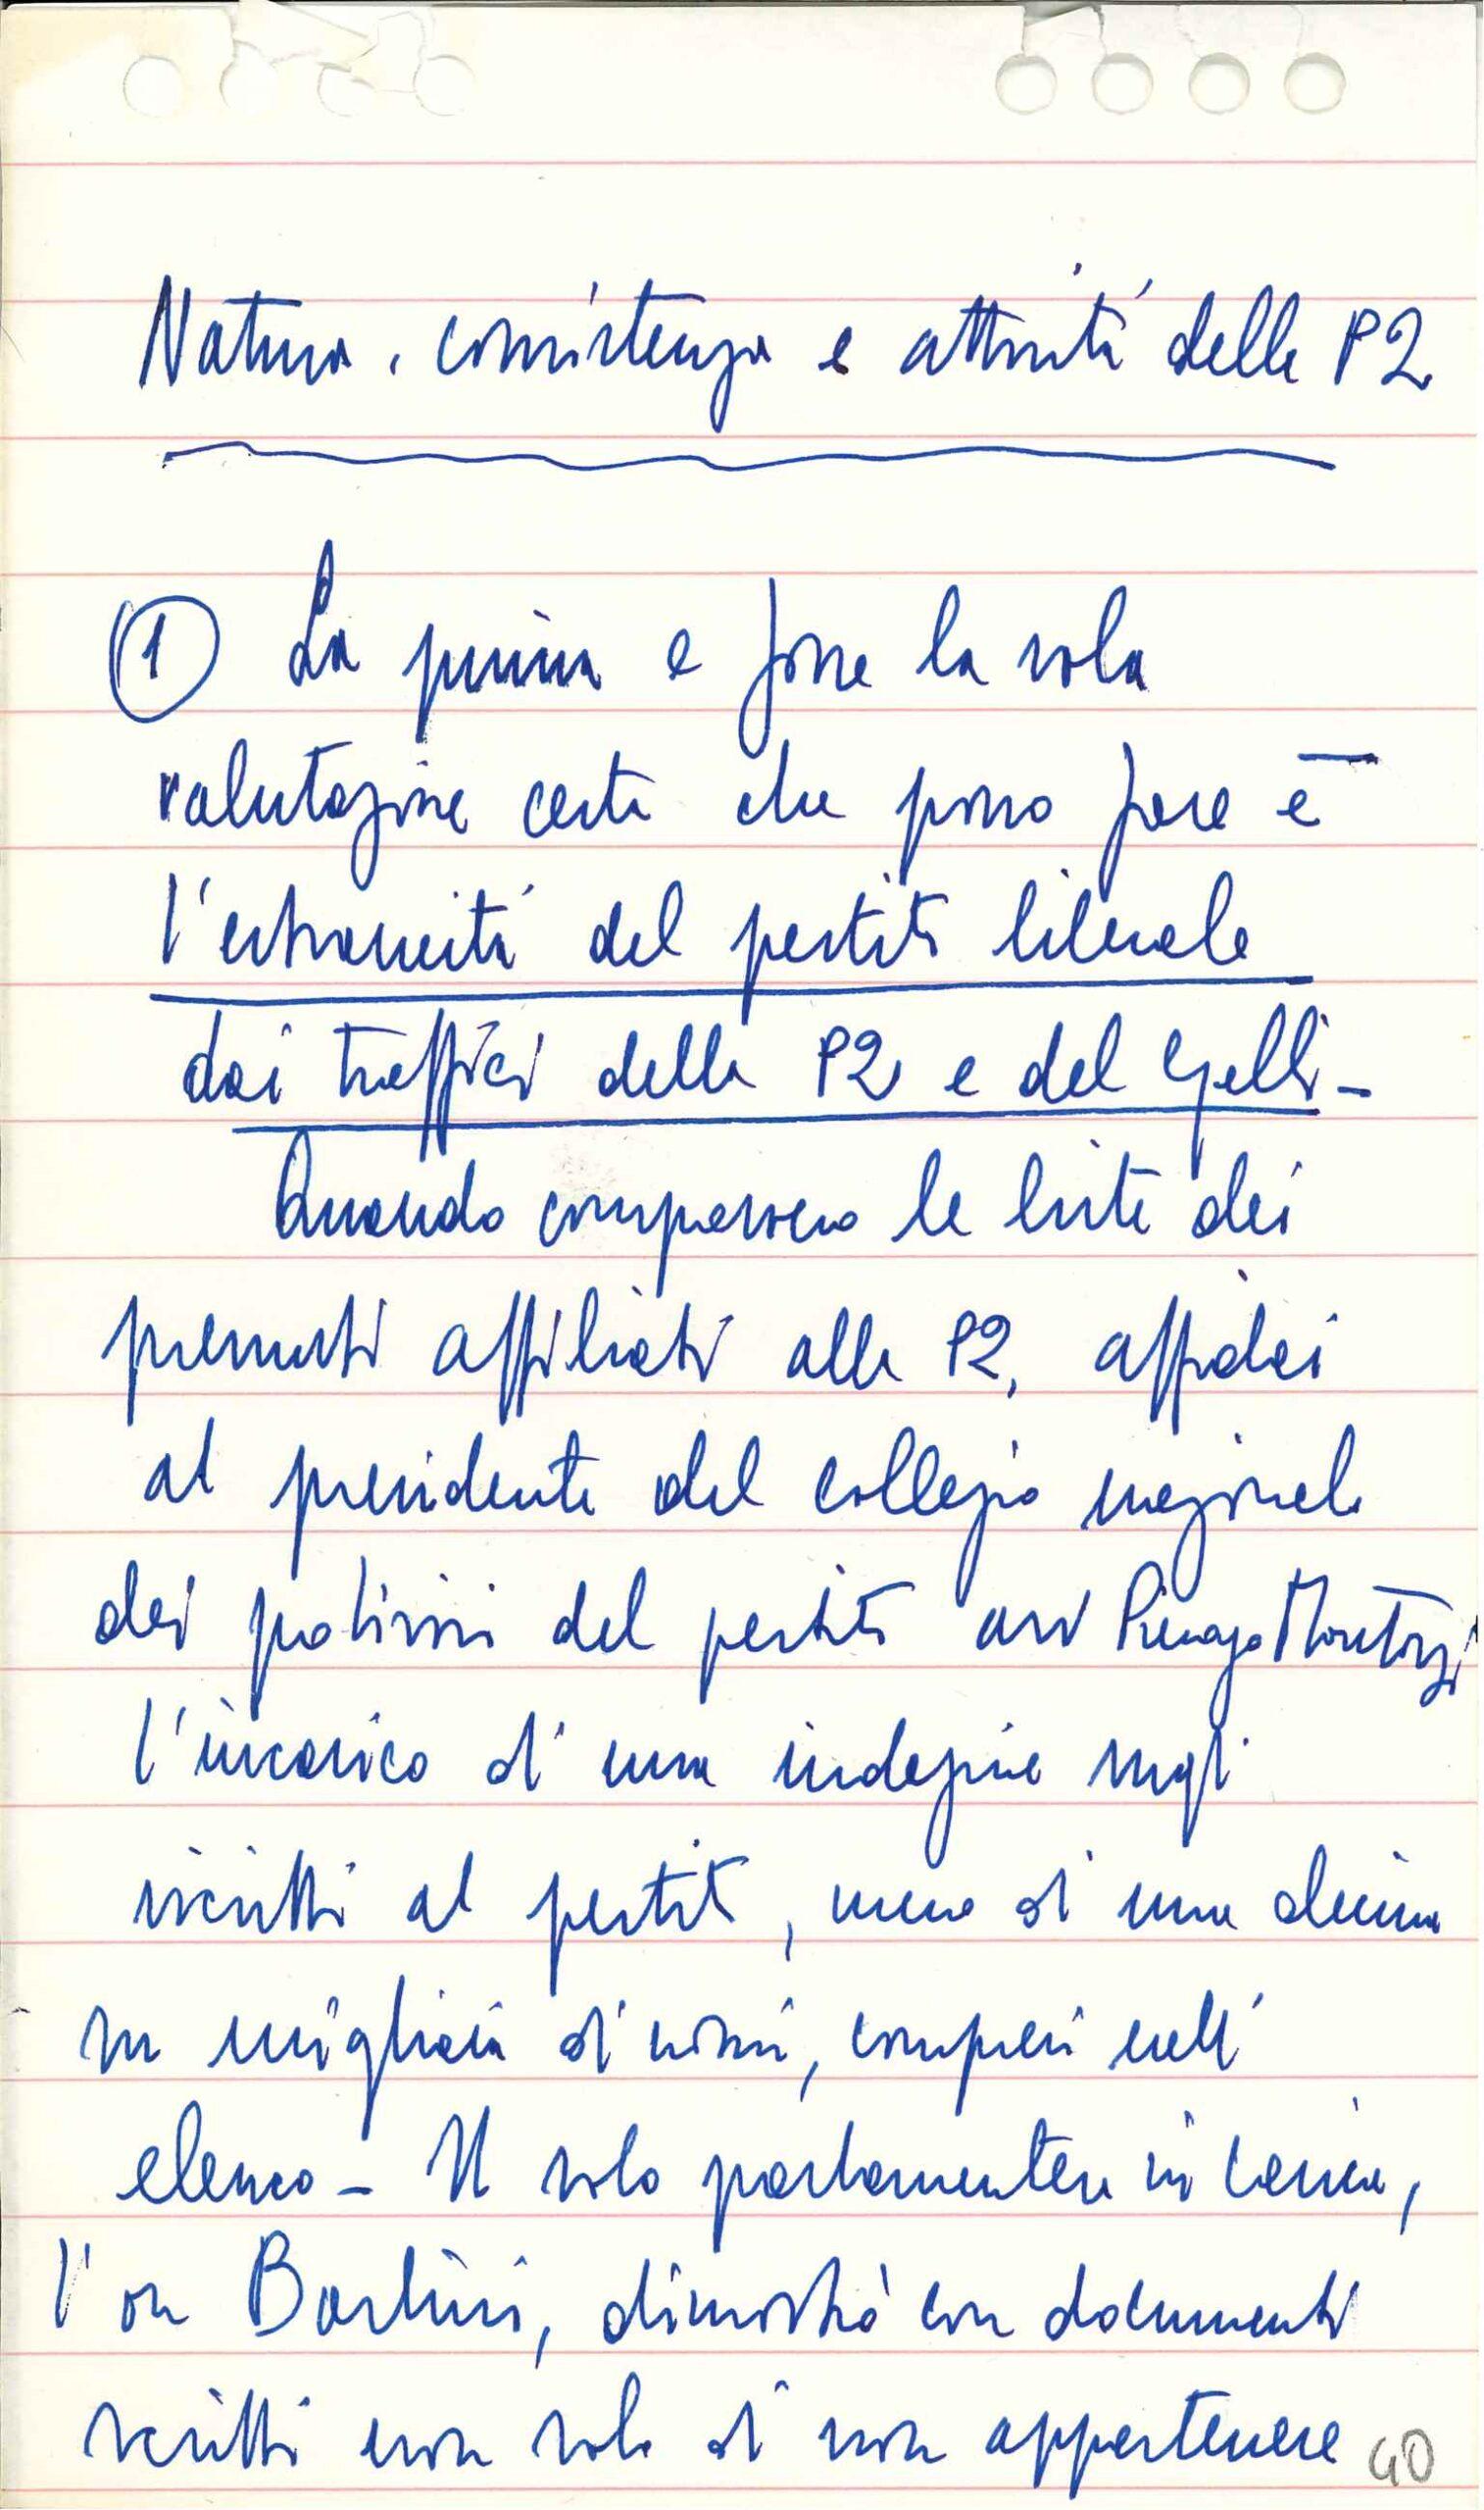 Natura, consistenza e attività della P2
1 La prima e forse la sola
valutazione certa che posso fare è
l'estraneità del partito liberale
dai traffici della P2 e del Gelli -
Quando comparvero le liste dei
presunti affiliati alla P2, affidai
al presidente del collegio nazionale
dei probiviri del partito avv
l'incarico di una indagine sugli
iscritti al partito, meno di una decina
su migliaia di nomi, compresi nell'
elenco - Il solo parlamentare in carica,
l'on Baslini, dimostrò con documenti
scritti non solo di non appartenere
40